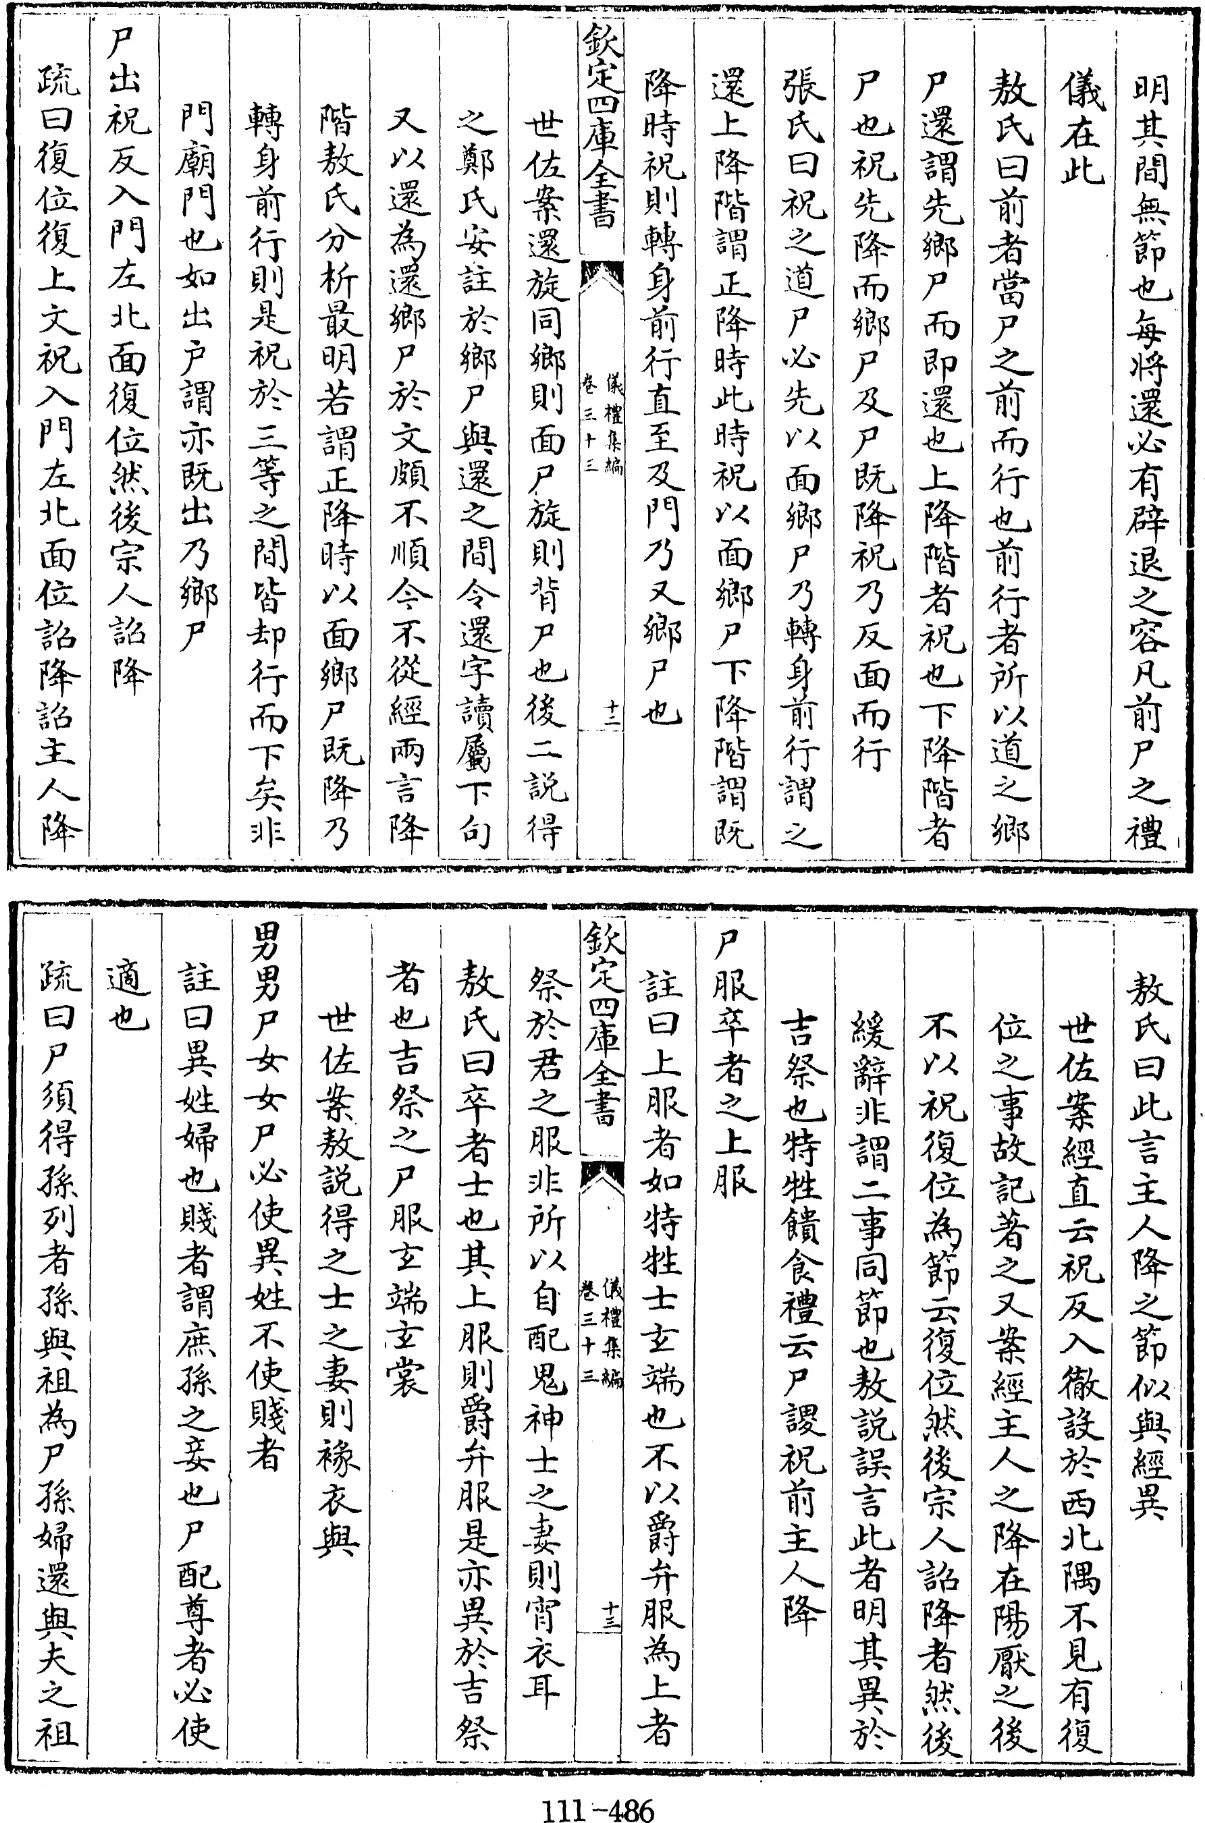 明其間無節也每將還必有辟退之容凡前尸之禮
儀在此
敖氏曰前者當尸之前而行也前行者所以道之鄉
尸還謂先鄉尸而即還也上降階者祝也下降階者
尸也祝先降而鄉尸及尸既降祝乃反面而行
張氏曰祝之道尸必先以面鄉尸乃轉身前行謂之
還上降階謂正降時此時祝以面鄉尸下降階謂既
降時祝則轉身前行直至及門乃又鄉尸也
欽定四庫全書
儀禮集編
卷三十三
十二
世佐案還旋同鄉則面尸旋則背尸也後二説得
之鄭氏安註於鄉尸與還之間令還字讀屬下句
又以還為還鄉尸於文頗不順今不從經兩言降
階敖氏分析最明若謂正降時以面鄉尸既降乃
轉身前行則是祝於三等之間皆却行而下矣非
門廟門也如出户謂亦既出乃鄉尸
尸出祝反入門左北面復位然後宗人詔降
疏曰復位復上文祝入門左北面位詔降詔主人降
敖氏曰此言主人降之節似與經異
世佐案經直云祝反入徹設於西北隅不見有復
位之事故記著之又案經主人之降在陽厭之後
不以祝復位為節云復位然後宗人詔降者然後
緩辭非謂二事同節也敖説誤言此者明其異於
吉祭也特牲饋食禮云尸謖祝前主人降
尸服卒者之上服
註曰上服者如特牲士玄端也不以爵弁服為上者
欽定四庫全書
儀禮集編
卷三十三
十三
祭於君之服非所以自配鬼神士之妻則宵衣耳
敖氏曰卒者士也其上服則爵弁服是亦異於吉祭
者也吉祭之尸服玄端玄裳
世佐案敖説得之士之妻則褖衣與
男男尸女女尸必使異姓不使賤者
註曰異姓婦也賤者謂庶孫之妾也尸配尊者必使
適也
疏曰尸須得孫列者孫與祖為尸孫婦還與夫之祖
111-486